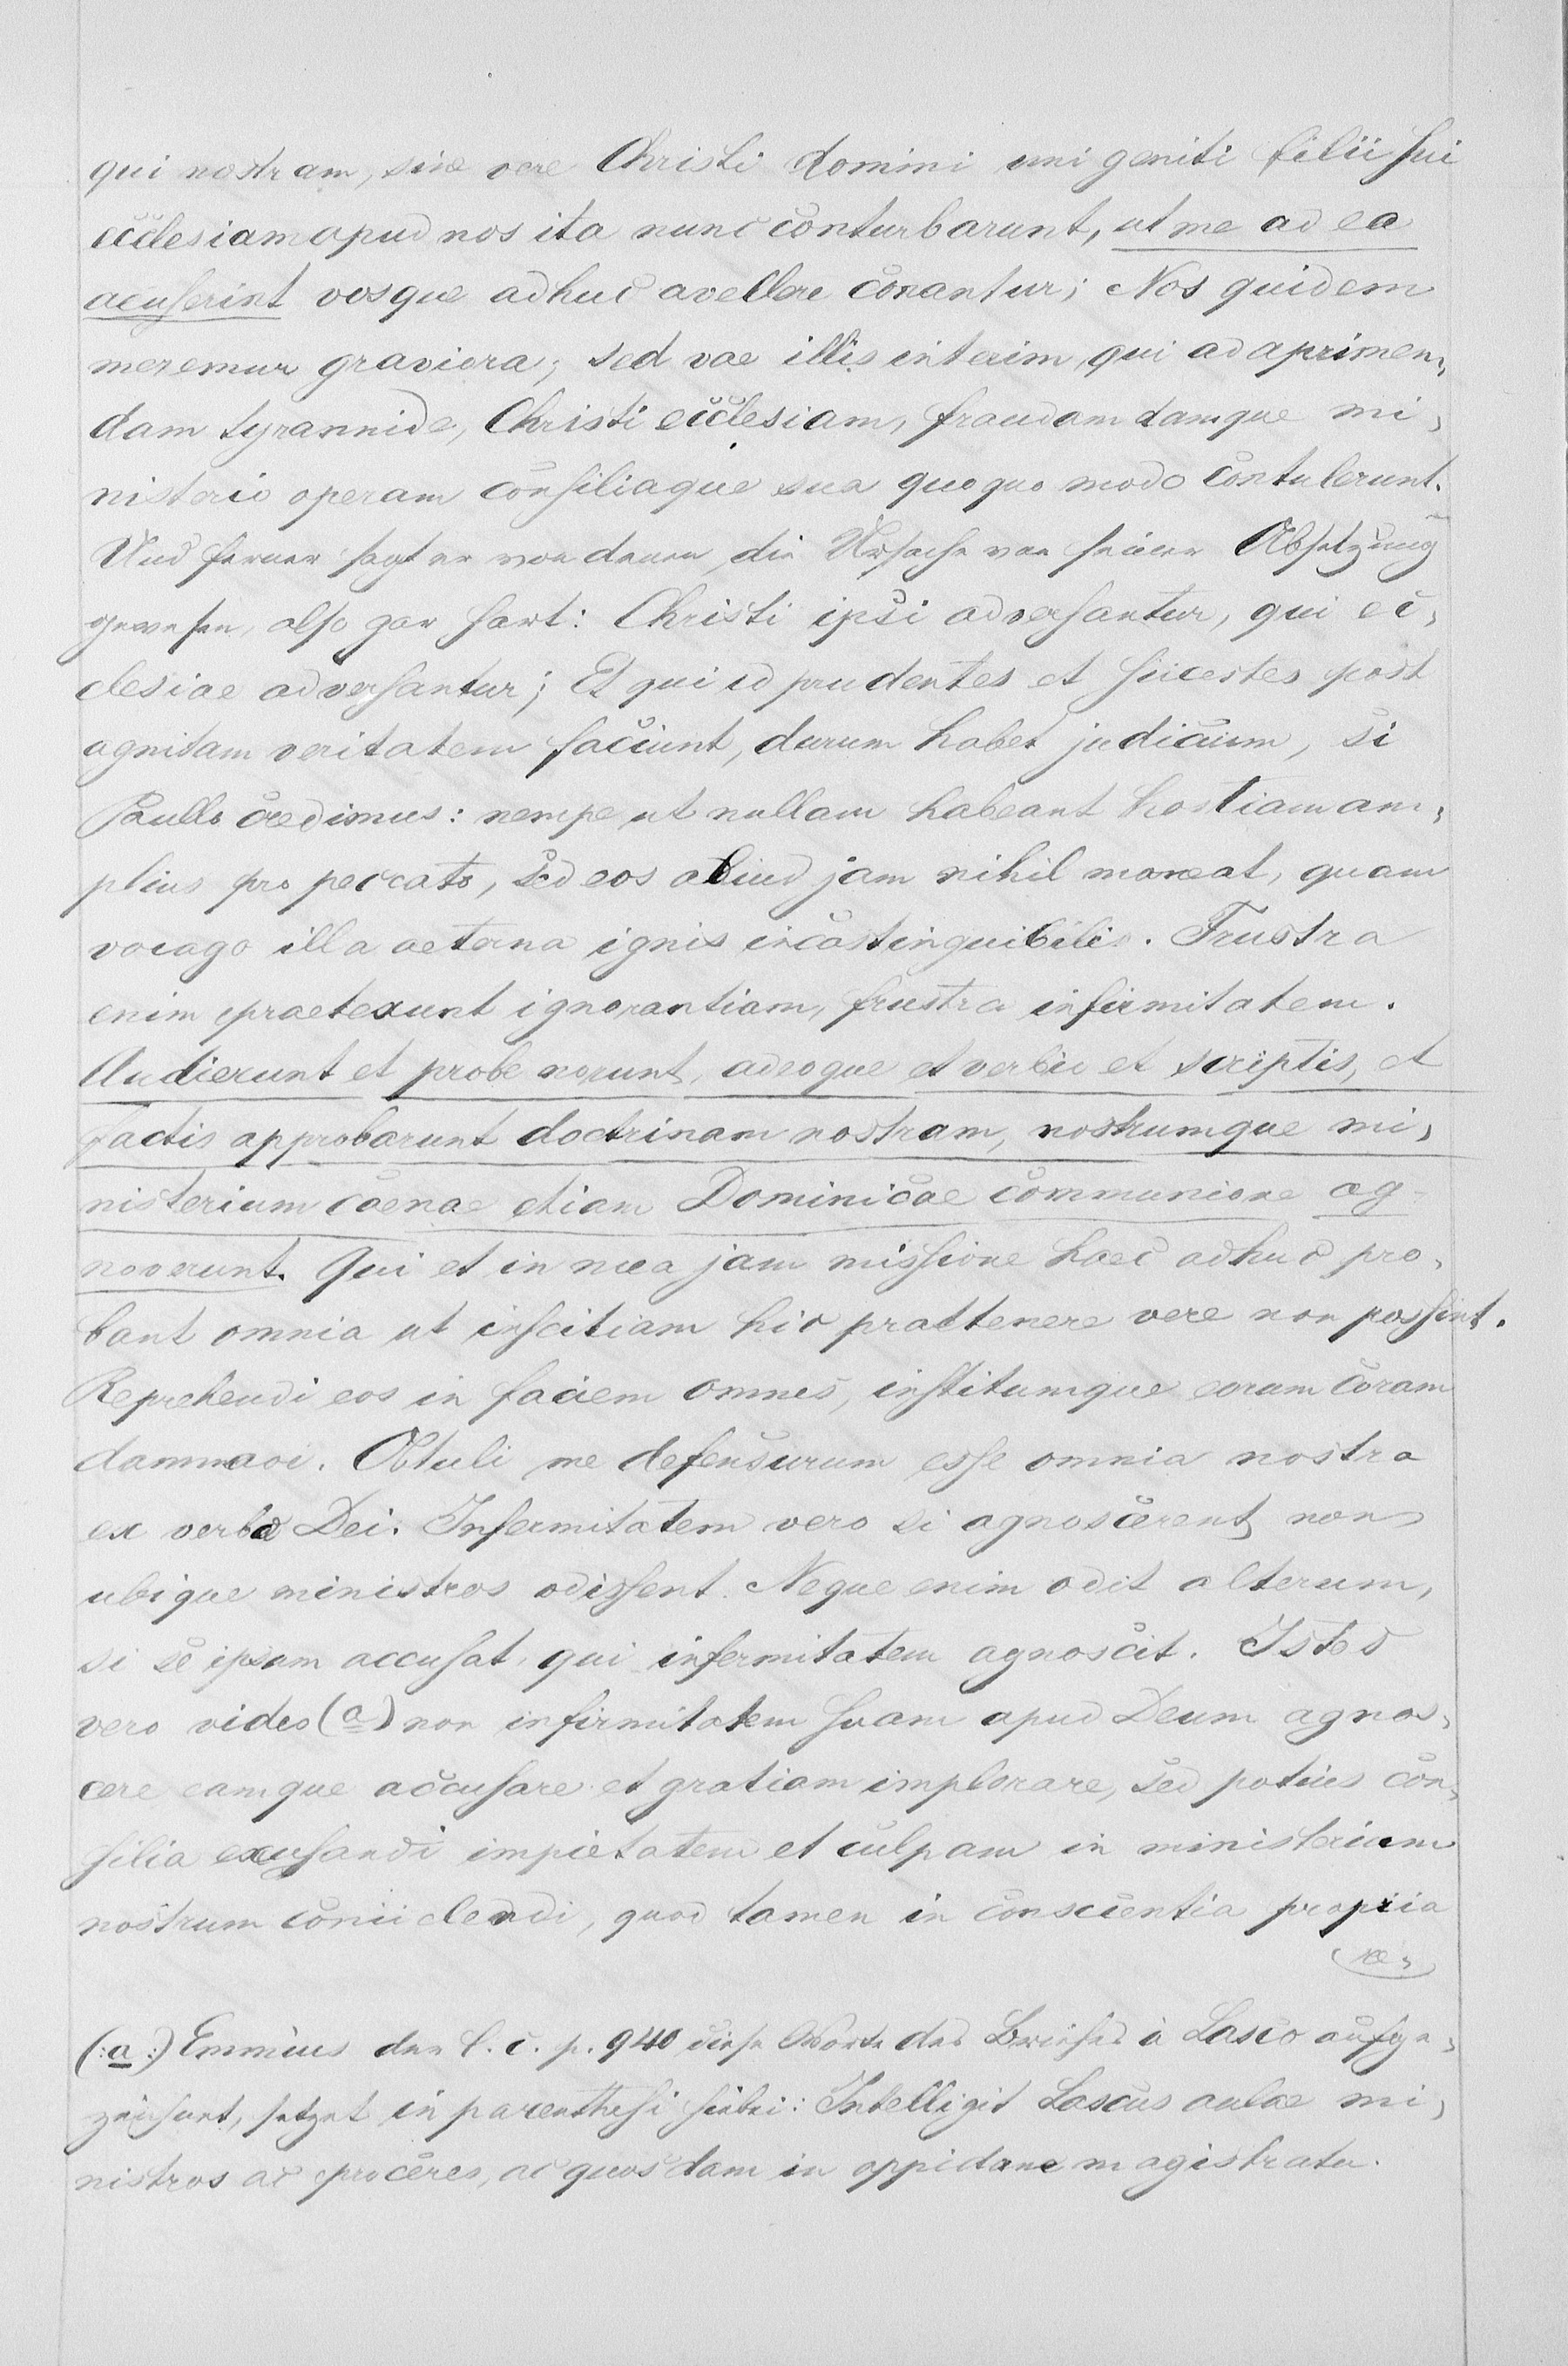 qui nostram, sive vere Christi Domini uni geniti filii sui
ecclesiam apud nos ita nunc conturbarunt, ut me ad ea
acuserint vosque adhuc avellere conantur; Nos quidem
meremur graviora; sed vae illis interim, qui ad aprimen,
dam tyrannide, Christi ecclesiam, fraudam damque mi,
nisterio operam consiliaque sua quoquo modo contulerunt.
Und ferner sagt er von denen, die Ursache von seiner Absetzung
gewesen, also gar hart: Christi ipsi adversantur, qui ec,
clesiae adversantur; Et qui id prudentes et scientes post
agnitam veritatem faciunt, durum habet judicium, si
Paullo credimus: nempe ut nullam habeant hostiam am,
plius pro peccato, sed eos aliud jam nihil maneat, quam
vorago illa aeterna ignis inextinguibilis. Frustra
enim praetexunt ignorantiam, frustra infirmitatem.
Audierunt et probe norunt, adeoque et verbis et scriptis, et
factis approbarunt doctrinam nostram, nostrumque mi,
nisterium caenae etiam Dominicae communione ag-
noverunt. Qui et in mea jam missione haec adhuc pro,
bant omnia ut inscitiam hic prattenere vere non possint.
Reprehendi eos in faciem omnes, institumque eorum coram
damnavi. Obtuli me defensurum esse omnia nostra
ex verbo Dei. Infermitatem vero si agnoscerent, non
ubique ministros odissent. Neque enim odit alterum,
si se ipsum accusat, qui infermitatem agnoscit. Istos
vero video (a) non infirmitatem suam apud Deum agnos,
cere eamque accusare et gratiam implorare, sed potius con,
silia excusandi impietatem et culpam in ministerium
nostrum coniiciendi, quod tamen in conscientia propria
re,
(:a:) Emmius der l. c. p. 940 diese Worte des Briefes à Lasco aufge,
zeichnet, setzet in parenthesi hiebei: Intelligit Lascus aulae mi,
nistros ac proceres, ac quosdam in oppidano magistratu.